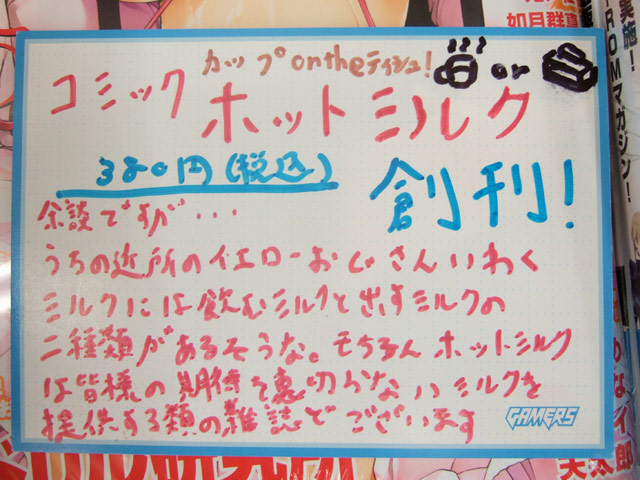 如月群真
実施!
ROMマガジン!
カップontheティシュ!
or
コミック
ホットミルク
380円(税込)
創刊!
余談ですが・・・
うちの近所のイエローおじさんいわく
ミルクには飲むミルクと出すミルクの
二種類があるそうな。もちろんホットミルク
は皆様の期待を裏切らないミルクを
提供する類の雑誌でございます
GAMERS
天太郎